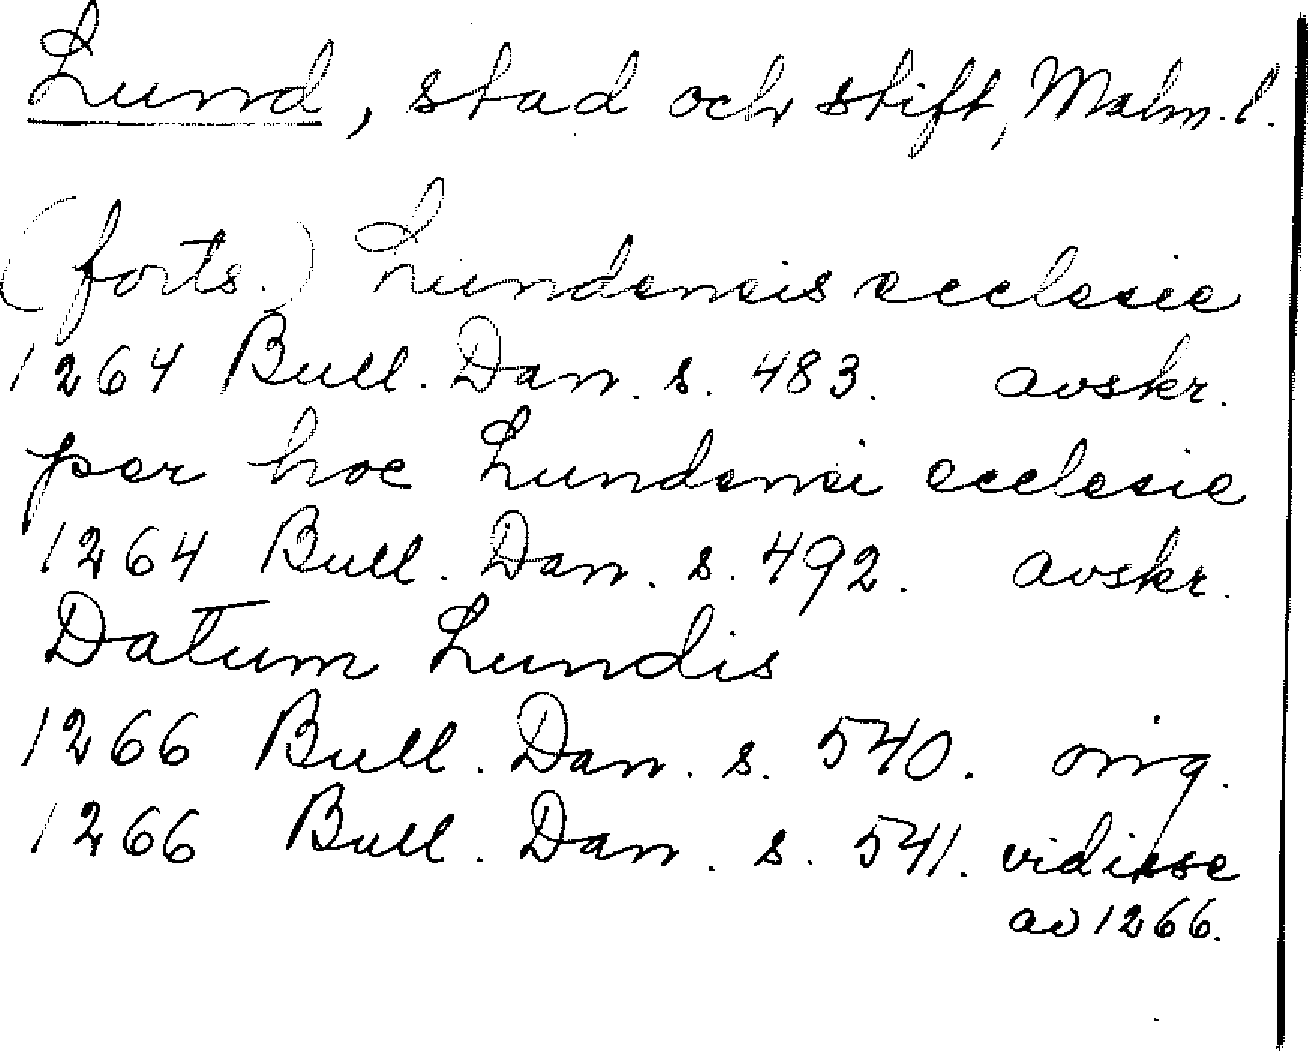 Lund, stad och stift, Malm. l.
(forts.) Lundensis ecclesie
1264 Bull. Dan. s. 483. avskr.
per hoc Lundensi ecclesie
1264 Bull. Dan. s. 492. avskr.
Datum Lundis
1266 Bull. Dan. s. 540. orig.
1266 Bull. Dan. s. 541. vidisse
av 1266.